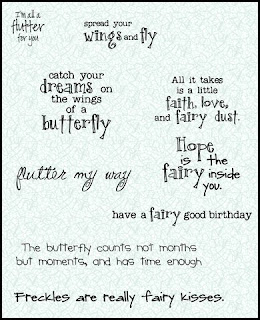 I'm all a
flutter
for you
spread your
wings and fly
catch your
dreams on
the wings
of a
butterfly
All it takes
is a little
faith, love,
and fairy dust.
Hope
is the
fairy inside
you.
flutter my way
have a fairy good birthday
The butterfly counts not months
but moments, and has time enough
Freckles are really fairy kisses.